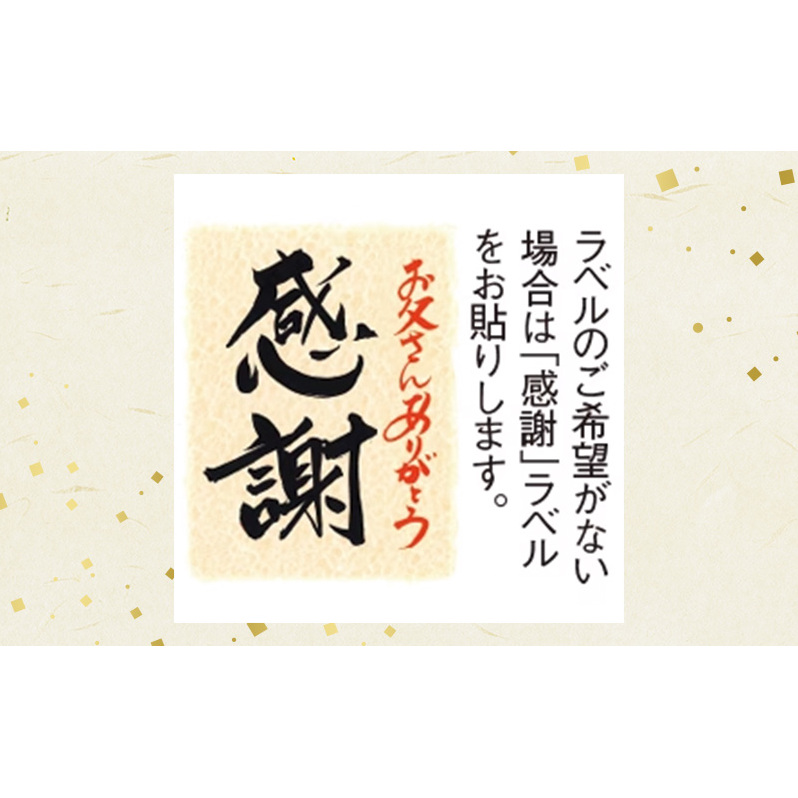 ラベルのご希望がない
場合は「感謝」ラベル
をお貼りします。
お父さんありがとう
感謝